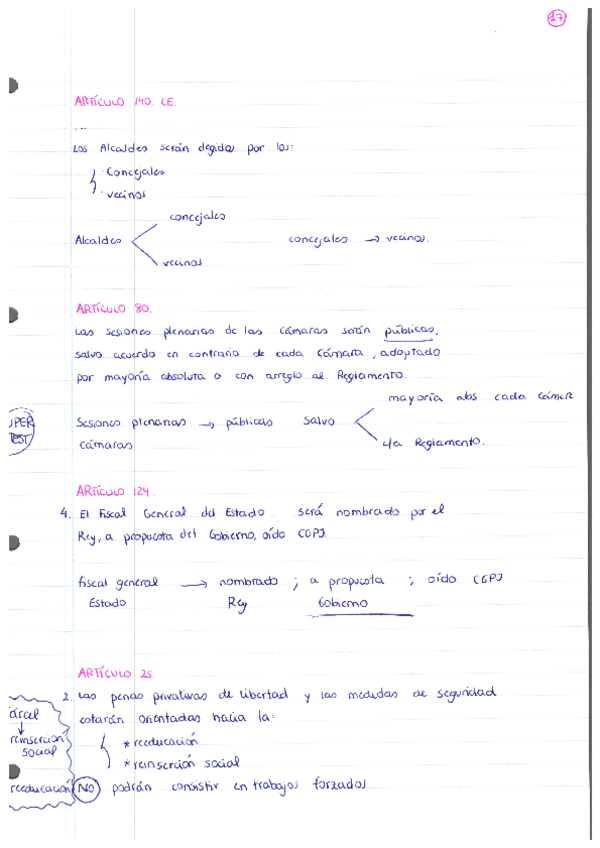 17
ARTÍCULO 140. CE.
...
Los Alcaldes serán elegidos por los:
· Concejales
· vecinos
concejales
Alcaldes concejales → vecinos.
vecinos
ARTÍCULO 80.
Las sesiones plenarias de las cámaras serán públicas,
salvo acuerdo en contrario de cada Cámara, adoptado
por mayoría absoluta o con arreglo al Reglamento.
mayoría abs cada Cámar
Sesiones plenarias → públicas salvo
cámaras c/a Reglamento.
UPER
TEST
ARTÍCULO 124.
4. El Fiscal General del Estado será nombrado por el
Rey, a propuesta del Gobierno, oído CGPJ
fiscal general → nombrado ; a propuesta ; oído CGPJ
Estado Rey Gobierno
ARTÍCULO 25.
2. Las penas privativas de libertad y las medidas de seguridad
estarán orientadas hacia la:
* reeducación
* reinserción social
NO podrán consistir en trabajos forzados
árcel
↓
reinserción
social
reeducación